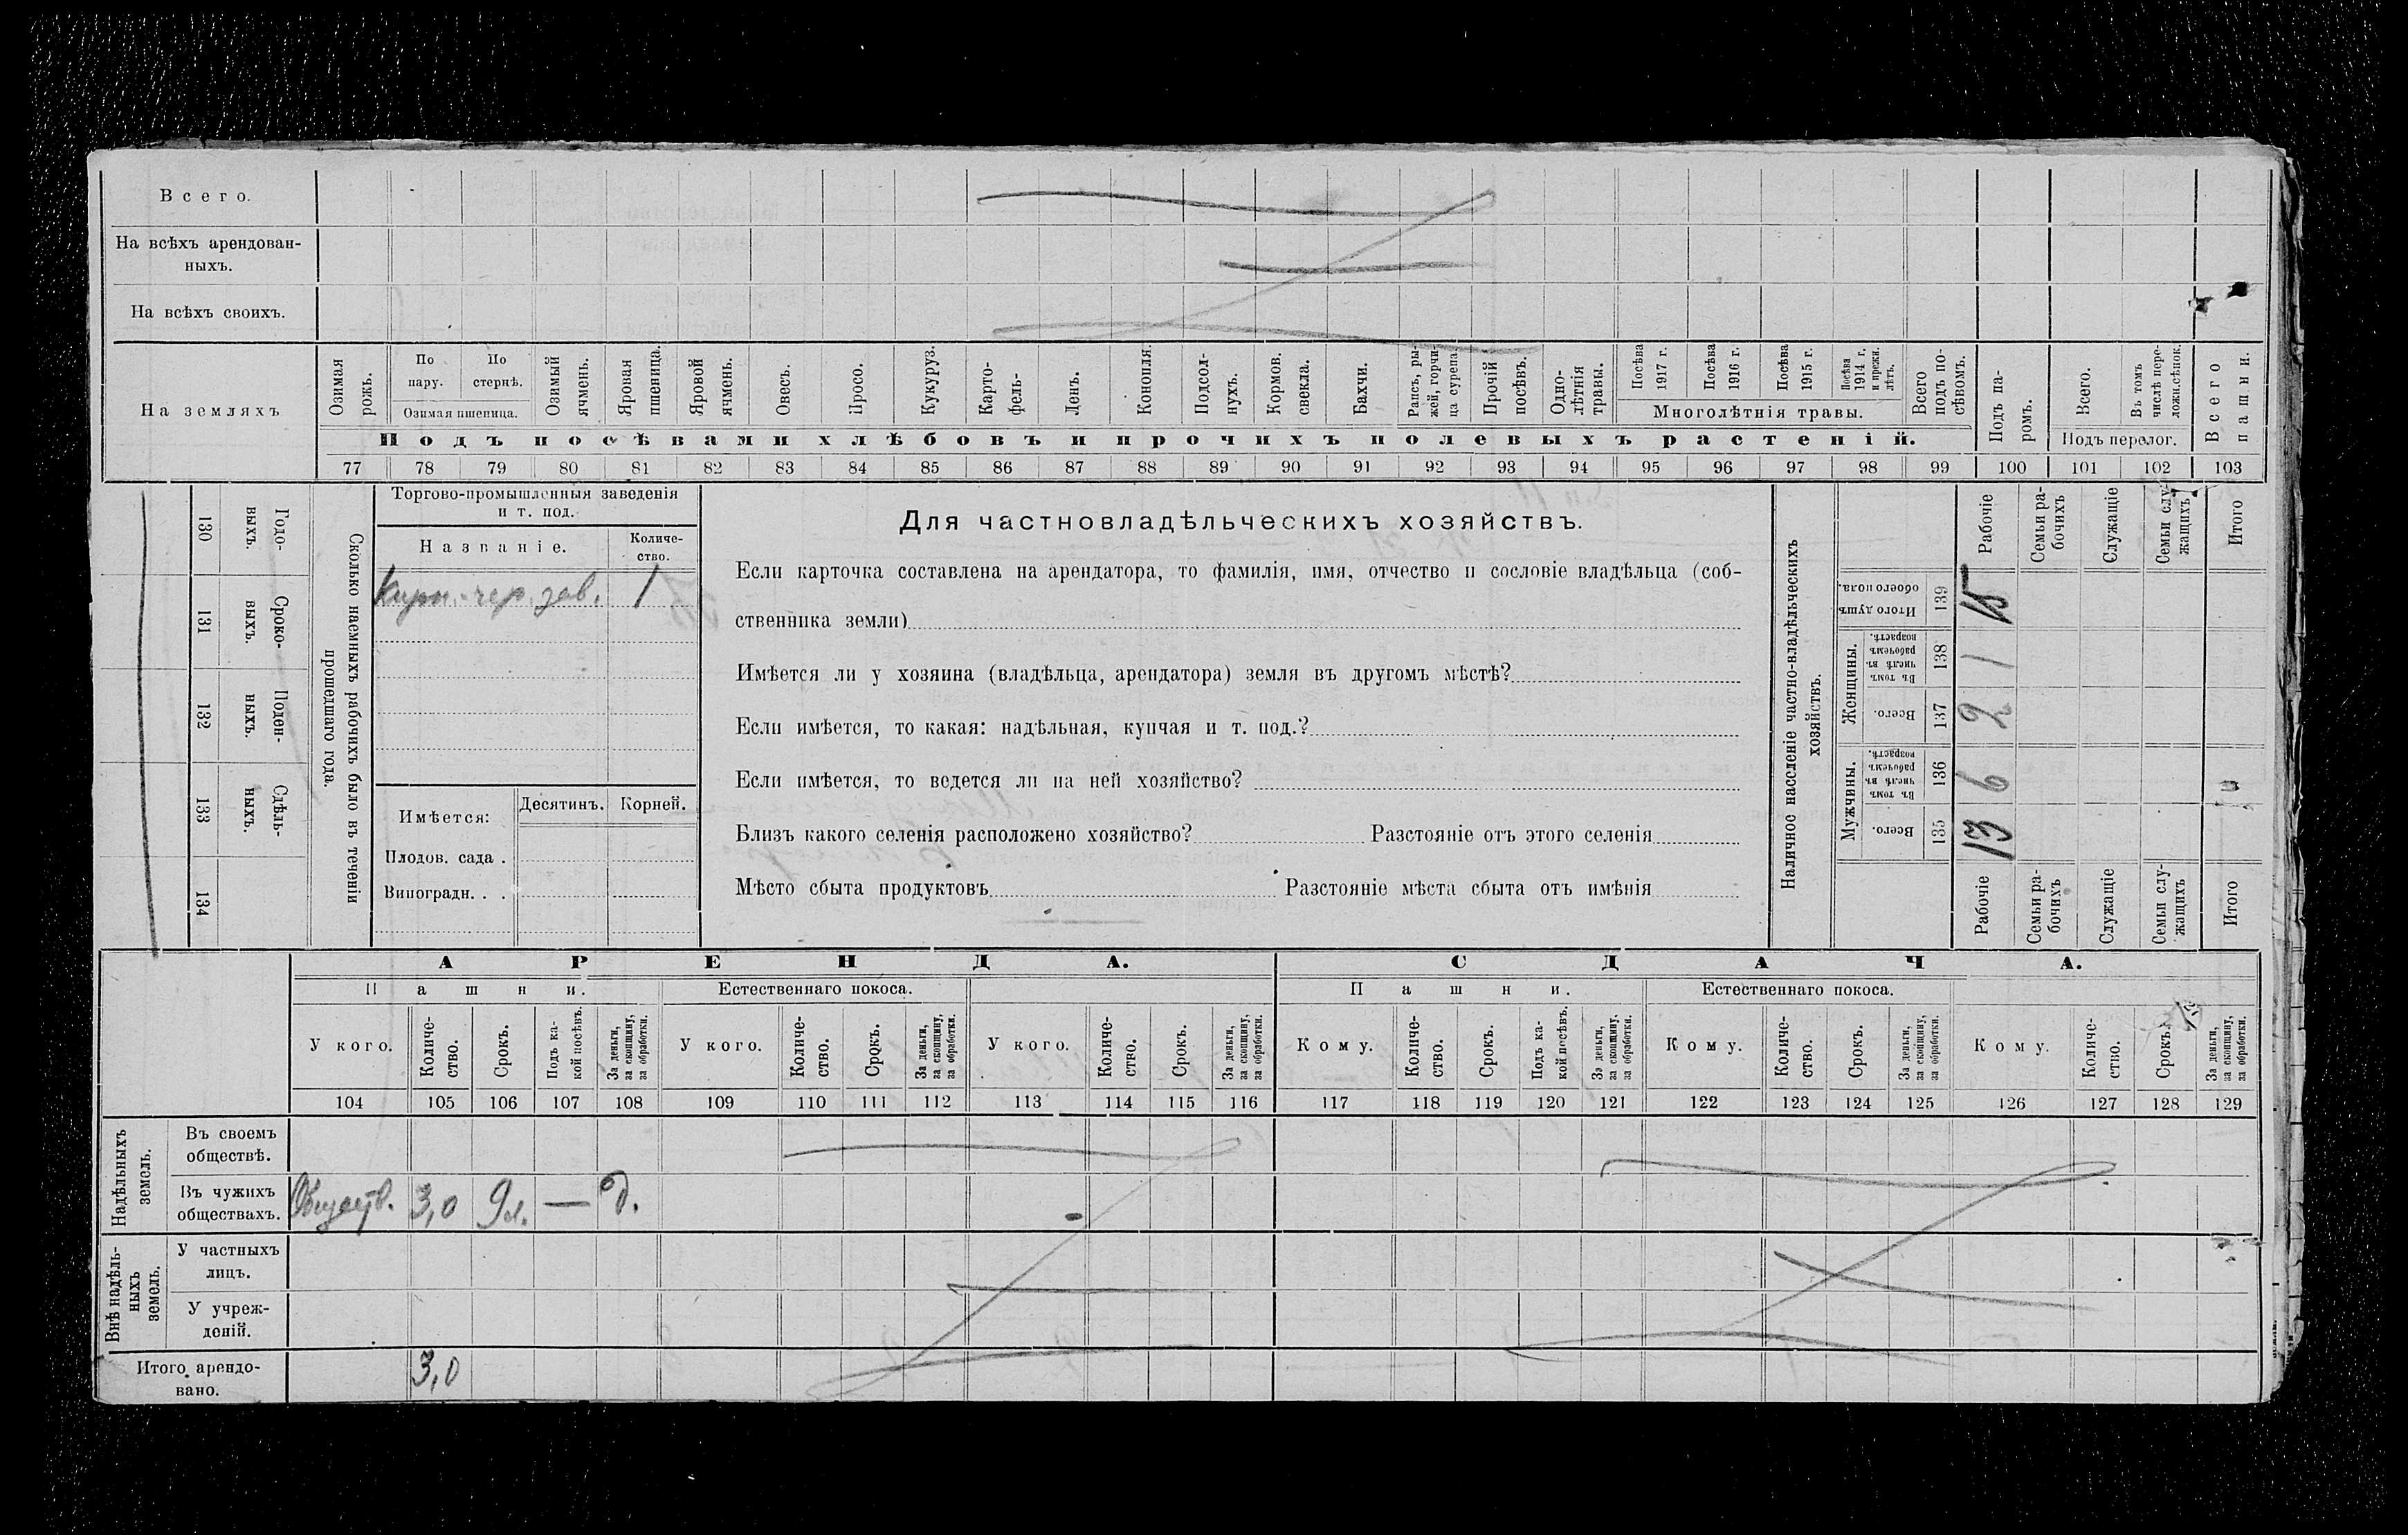 Всего.
На всѣхъ арендован-
ныхъ.
На всѣхъ своихъ.
На земляхъ
Озимая рожь.
По пару.
По стернѣ.
Озимая пшеница.
Озимый ячмень.
Яровая пшеница.
Яровой ячмень.
Овесъ.
Просо.
Кукуруз.
Карто-
фель-
Ленъ.
Конопля.
Подсол-
нухъ.
Кормов. свекла.
Бахчи.
Рапсъ, ры-
жей, горчи-
ца сурепа.
Прочій посѣвъ.
Одно-
лѣтнія травы.
Посѣва 1917 г.
Посѣва 1916 г.
Посѣва 1915 г.
Посѣва 1914 г. и прежн. лѣтъ.
Многолѣтнія травы.
Всего подъ по-
сѣвомъ.
Подъ па-
ромъ.
Всего.
Въ томъ числѣ пере-
Подъ перелог.
Всего пашни.
Подъ посѣвами хлѣбовъ и прочихъ полевыхъ растеній.
77 78 79 80 81 82 83 84 85 86 87 88 89 90 91 92 93 94 95 96 97 98 99 100 101 102 103
130 Годо-
выхъ.
131 Сроко-
выхъ.
132 Поден-
ныхъ.
133 Сдѣль-
ныхъ.
134
Сколько наемныхъ рабочихъ было въ теченіи
прошедшаго года.
Торгово-промышленныя заведенія
и т. под.
Названіе.
Количе-
ство.
Кирп.-чер. зав. 1
Имѣется:
Десятинъ. Корней.
Плодов. сада .
Виноградн. . .
Для частновладѣльческихъ хозяйствъ.
Если карточка составлена на арендатора, то фамилія, имя, отчество и сословіе владѣльца (соб-
ственника земли)
Имѣется ли у хозяина (владѣльца, арендатора) земля въ другомъ мѣстѣ?
Если имѣется, то какая: надѣльная, купчая и т. под.?
Если имѣется, то ведется ли на ней хозяйство?
Близъ какого селенія расположено хозяйство? Разстояніе отъ этого селенія
Мѣсто сбыта продуктовъ Разстояніе мѣста сбыта отъ имѣнія
Наличное населеніе частно-владѣльческихъ
хозяйствъ.
Рабочіе
Семьи ра-
бочихъ
Служащіе
Семьи слу-
жащихъ
Итого
Итого душъ обоего пола. 139 15
Женщины.
Въ томъ числѣ въ рабочемъ возрастѣ. 138 1
Всего. 137 2
Мужчины.
Въ томъ числѣ въ рабочемъ возрастѣ. 136 6
Всего. 135 13
Рабочіе
Семьи ра-
бочихъ
Служащіе
Семьи слу-
жащихъ
Итого
АРЕНДА. СДАЧА.
Пашни. Естественнаго покоса. Пашни. Естественнаго покоса.
У кого. Количе-
ство. Срокъ. Подъ ка-
кой посѣвъ. За деньги, за скопщину, за обработки.
У кого. Количе-
ство. Срокъ. За деньги, за скопщину, за обработки.
У кого. Количе-
ство. Срокъ. За деньги, за скопщину, за обработки.
Кому. Количе-
ство. Срокъ. Подъ ка-
кой посѣвъ. За деньги, за скопщину, за обработки.
Кому. Количе-
ство. Срокъ. За деньги, за скопщину, за обработки.
Кому. Количе-
ство. Срокъ. За деньги, за скопщину, за обработки.
104 105 106 107 108 109 110 111 112 113 114 115 116 117 118 119 120 121 122 123 124 125 126 127 128 129
Надѣльныхъ земель.
Въ своемъ
обществѣ.
Въ чужихъ
обществахъ.
Обществ. 3,0 9 л. — д.
Внѣ надѣль-
ныхъ земель.
У частныхъ
лицъ.
У учреж-
деній.
Итого арендо-
вано.
3,0